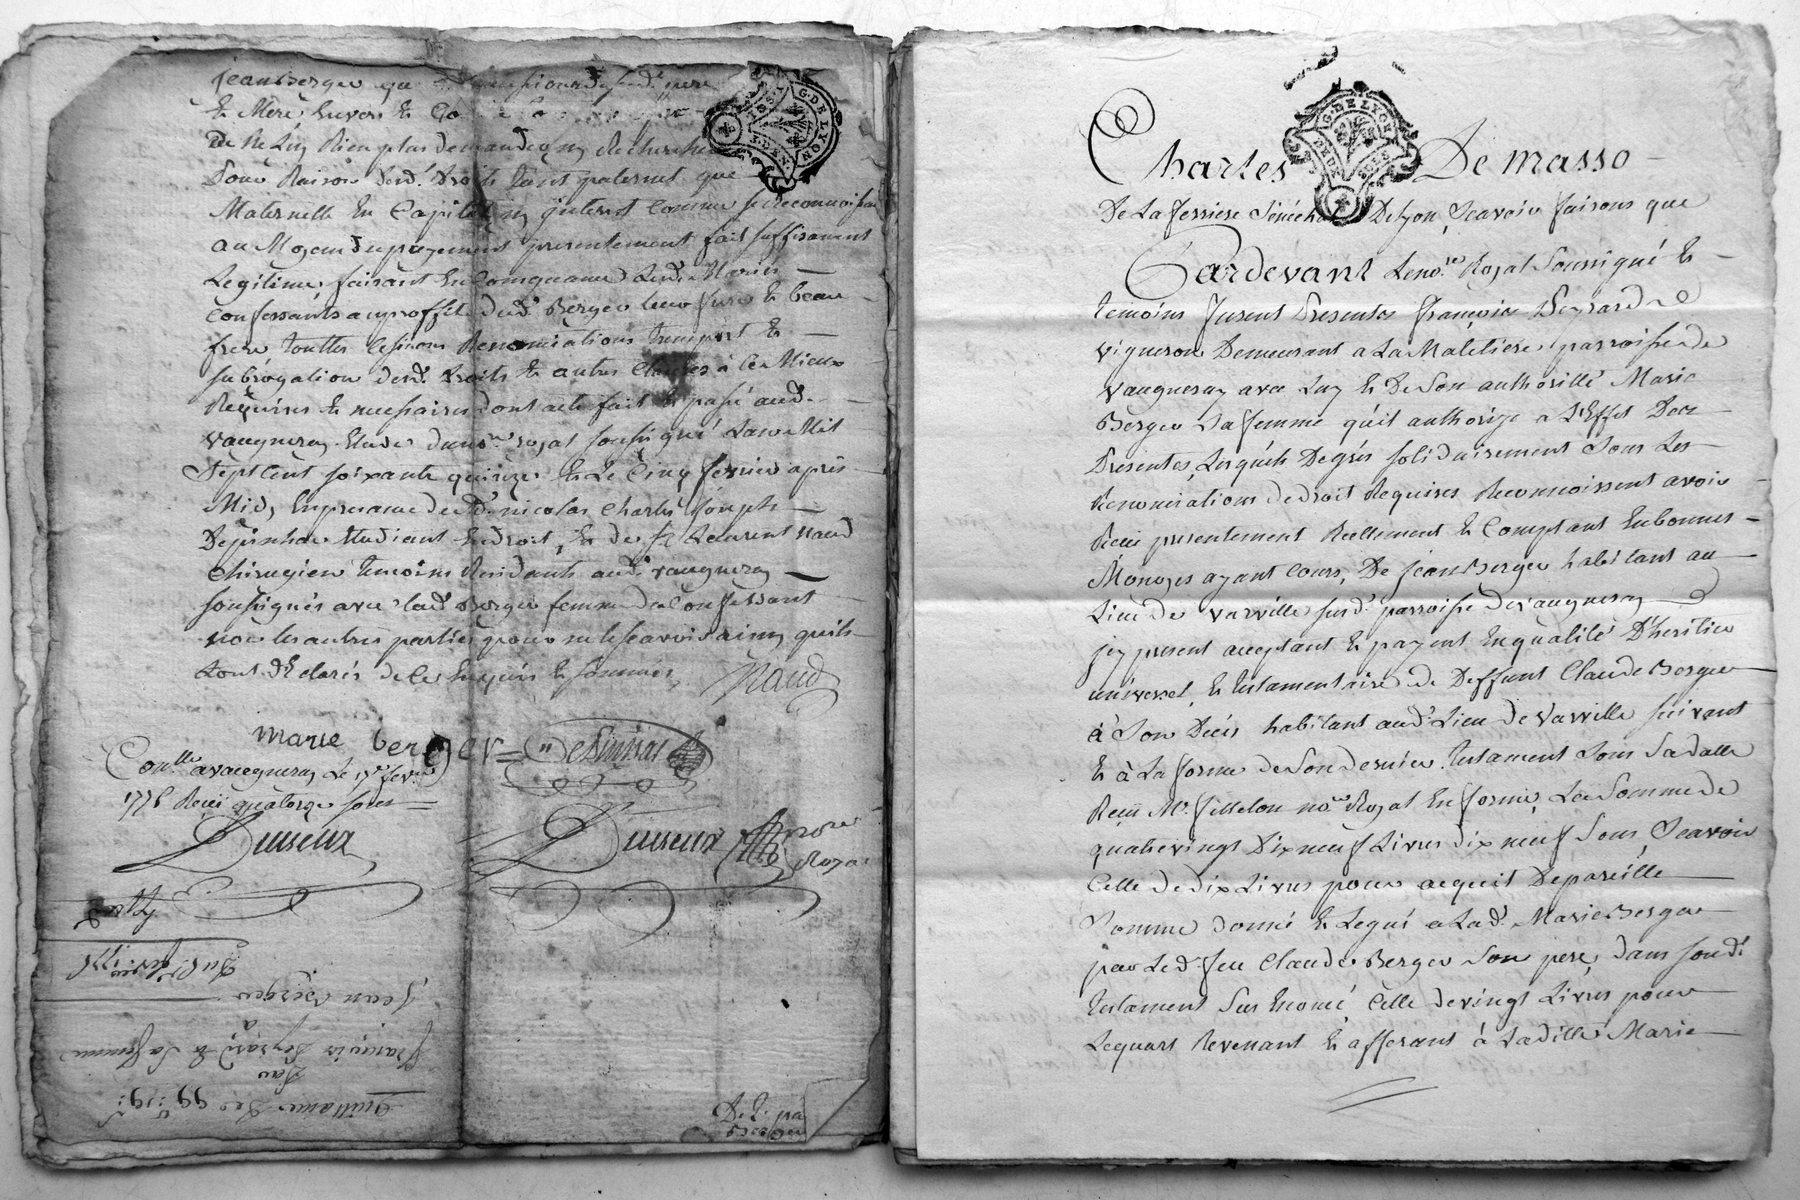 jean Berger que
et Mere Envers et
de Ne Luy Rien plus demander ny Rechercher
Pour Raison desd. Droits tant paternel que
Maternelle En Capital ny jnterest Comme se reconnoissant
au Moyen du payement presentement fait suffisament
Legitimes, faisant En Consequence Lesd. Mariés
Confessants au proffit dud. Berger leur frere et beau
frere, touttes Cessions Renonciations transport et
subrogation desd. droits et autres Clauses à Ce Mieux
Requises et necessaires dont acte fait et passé aud.
vaugneray Etude du no.re royal soussigné Lan Mil
Sept Cent soixante quinze et Le Cinq fevrier après
Midy En presence de s.r nicolas Charles joseph
Depinhac Etudiant En droit, et de s.r Laurent naud
Chirugien temoins Residants aud. vaugneray
soussignés avec lad. Berger femme de Confessant
non les autres parties pour ne le scavoir ainsy quils
Lont déClarés de Ce Enquis et sommés
Naud
marie berger
Con.lle a vaugneray Le 17.e fev.er
1775 Reçu quatorze sous
Duiseux
Duiseux no.re
Royal
fev.er 1775
Jean Berger
a
François Peyrard et Sa femme
Par
Quittance De 99.# 19.s
G. DE LYON
Charles De masso
De La ferriere Sénéchal De Lyon, Scavoir faisons que
Pardevant Le no.re Royal Soussigné et
temoins furent Presentes françois Peyrard
vigneron Demeurant a La Maletiere parroisse de
vaugneray avec Luy et De Son authorité Marie
Berger Sa femme qu'il authorize a L'Effet Des
Presentes, Lesquels De grés solidairement Sous Les
Renonciations de droit Requises Reconnoissent avoir
Reçu presentement Réellement et Comptant En bonnes
Monoyes ayant Cours, De jean Berger habitant au
Lieu de varville susd. parroisse de vaugneray
jcy present acceptant et payant En qualité D'heritier
universel et testamentaire de Deffunt Claude Berger
à Son Décés habitant aud. Lieu de varville suivant
et à La forme de Son dernier testament Sous Sa datte
Reçu M.e fillelon no.re Royal En forme, La Somme de
quatrevingt Dixneuf Livres dix neuf Sous, Scavoir
Celle de dix Livres pour acquit De pareille
Somme donné et Legué a Lad. Marie Berger
par Led. feu Claude Berger Son pere, dans Sond.
testament Sus Enoncé, Celle de vingt Livres pour
Le quart Revenant et afferant à Laditte Marie